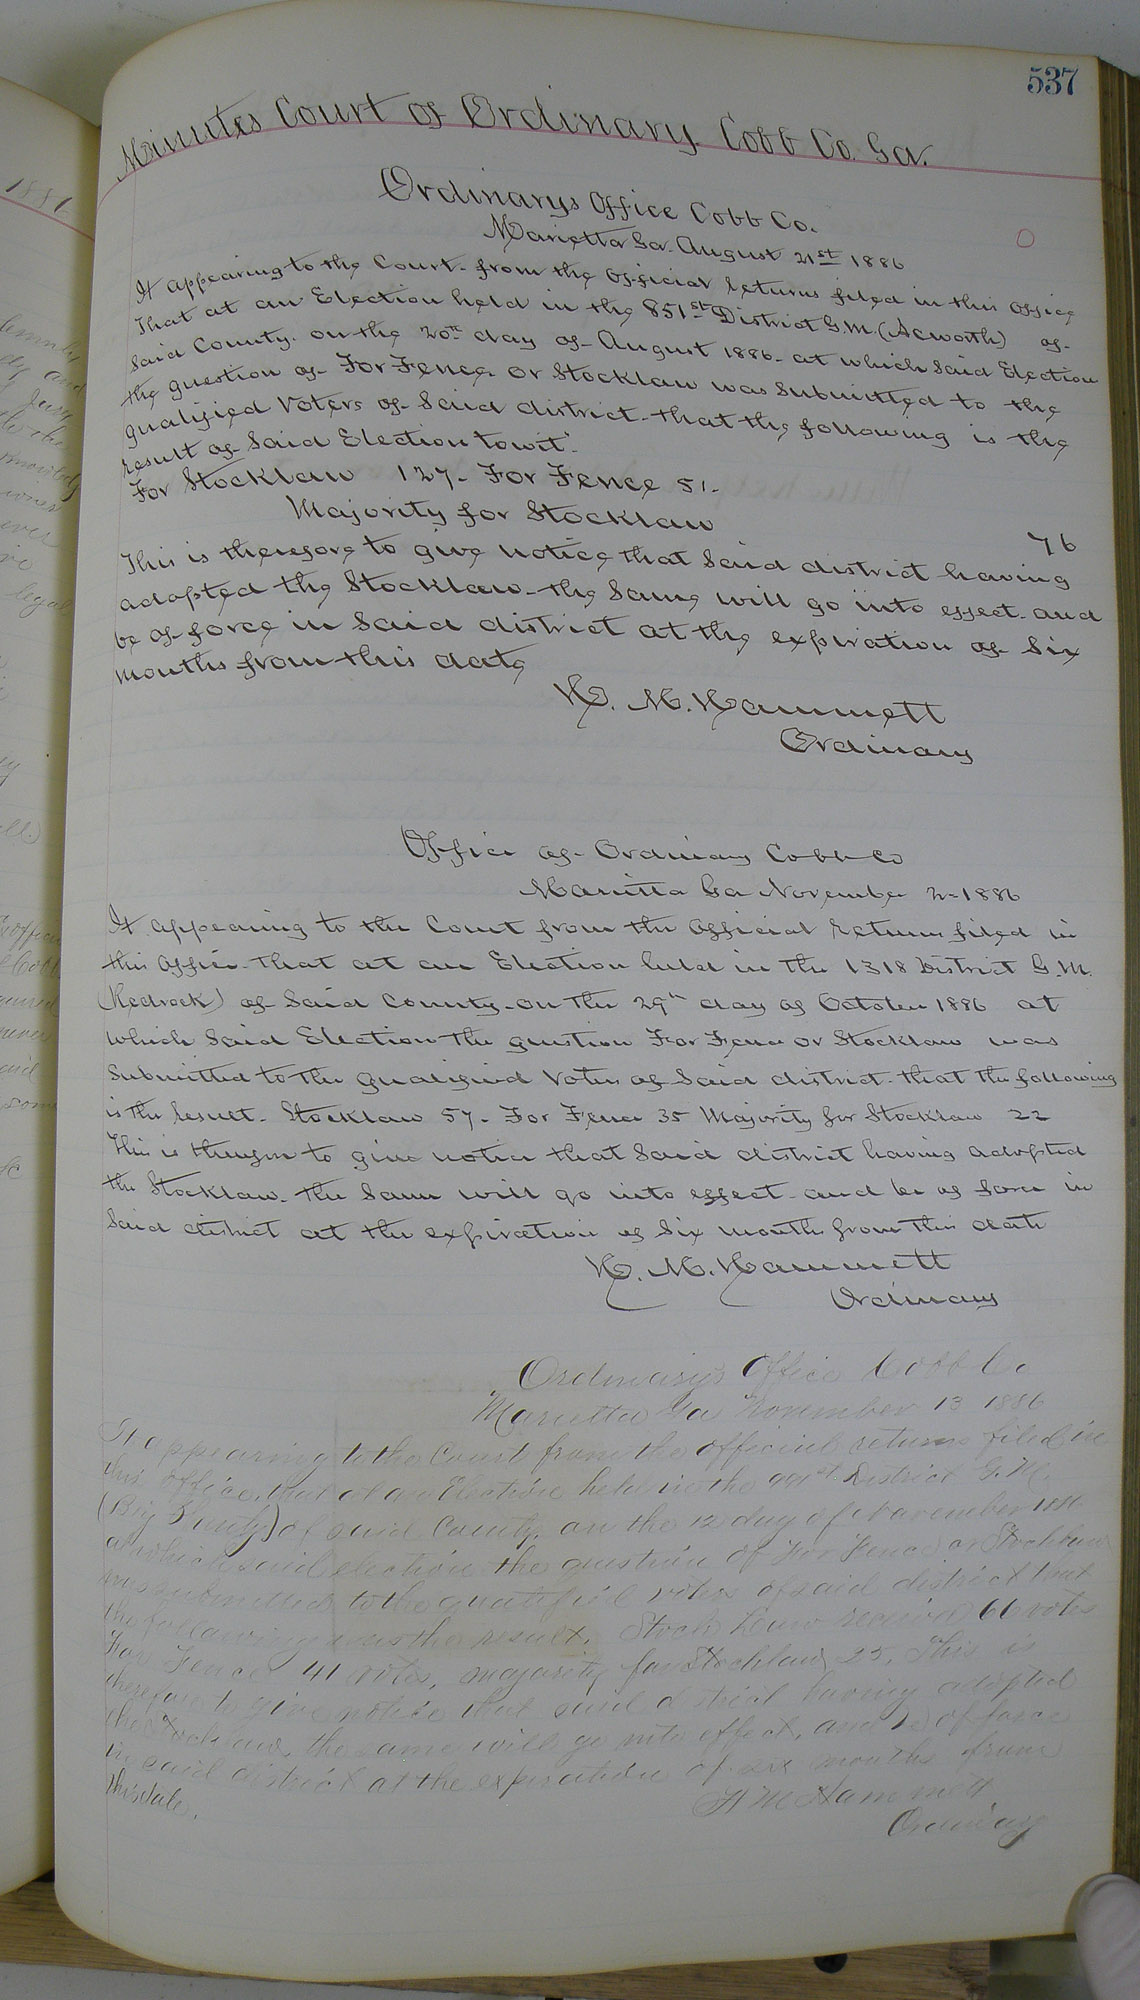 537
Minutes Court of Ordinary. Cobb Co. Ga.
Ordinarys Office Cobb Co.
Marietta Ga. August 21st 1886
It appearing to the Court from the official returns filed in this office
That at an Election held in the 851st District G.M. (Acworth) of
said County. on the 20th day of August 1886 at which said Election
the question of For Fence or Stocklaw was submitted to the
qualified Voters of said district. that the following is the
result of said Election towit.
For Stocklaw 127. For Fence 51.
Majority for Stocklaw 76
This is therefore to give notice that said district having
adopted the Stocklaw. the same will go into effect and
be of force in said district at the expiration of six
months from this date
H. M. Hammett
Ordinary
Office of Ordinary Cobb Co
Marietta Ga November 2 1886
It appearing to the Court from the official returns filed in
this office. that at an Election held in the 1318 District G.M.
(Redrock) of said County. on the 29th day of October 1886 at
which said Election the question For Fence or Stocklaw was
submitted to the qualified Voters of said district. that the following
is the result. Stocklaw 57. For Fence 35 Majority for Stocklaw 22
This is therefore to give notice that said district having adopted
the Stocklaw. the same will go into effect and be of force in
said district at the expiration of six months from this date
H. M. Hammett
Ordinary
Ordinary's Office Cobb Co
Marietta Ga November 13 1886
It appearing to the Court from the official returns filed in
this office, that at an Election held in the 991st District G.M.
(Big Shanty) of said County, on the 12 day of November 1886
at which said election the question of For Fence or Stocklaw
was submitted to the qualified voters of said district that
the following was the result. Stock Law received 66 votes
For Fence 41 votes, majority for Stocklaw 25, This is
therefore to give notice that said district having adopted
the Stock law, the same will go into effect, and be of force
in said district at the expiration of six months from
this date.
H M Hammett
Ordinary